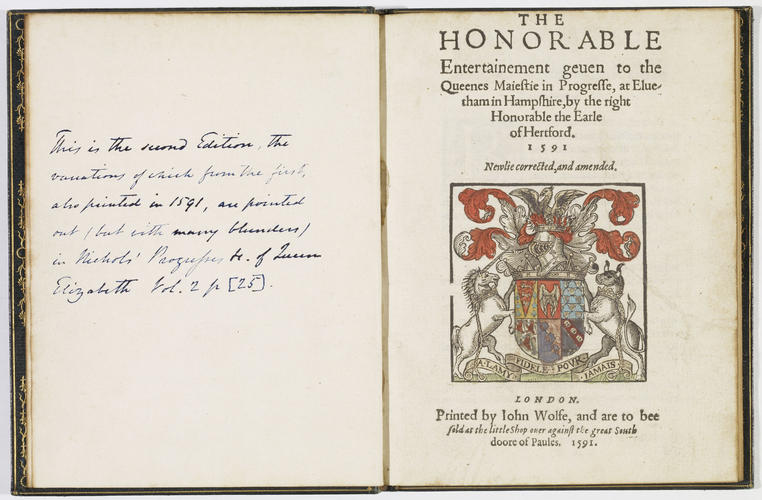 This is the second Edition, the
variations of which from the first,
also printed in 1591, are pointed
out (but with many blunders)
in Nichols' Progresses &c. of Queen
Elizabeth Vol. 2 p [25].
THE
HONORABLE
Entertainement geuen to the
Queenes Maieſtie in Progreſſe, at Elue-
tham in Hampſhire, by the right
Honorable the Earle
of Hertford.
1591
Newlie corrected, and amended.
A·LAMY·FIDELE·POVR·IAMAIS
LONDON.
Printed by Iohn Wolfe, and are to bee
ſold at the little Shop ouer againſt the great South
doore of Paules. 1591.